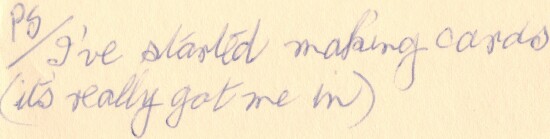 PS/I've started making cards
(it's really got me in)